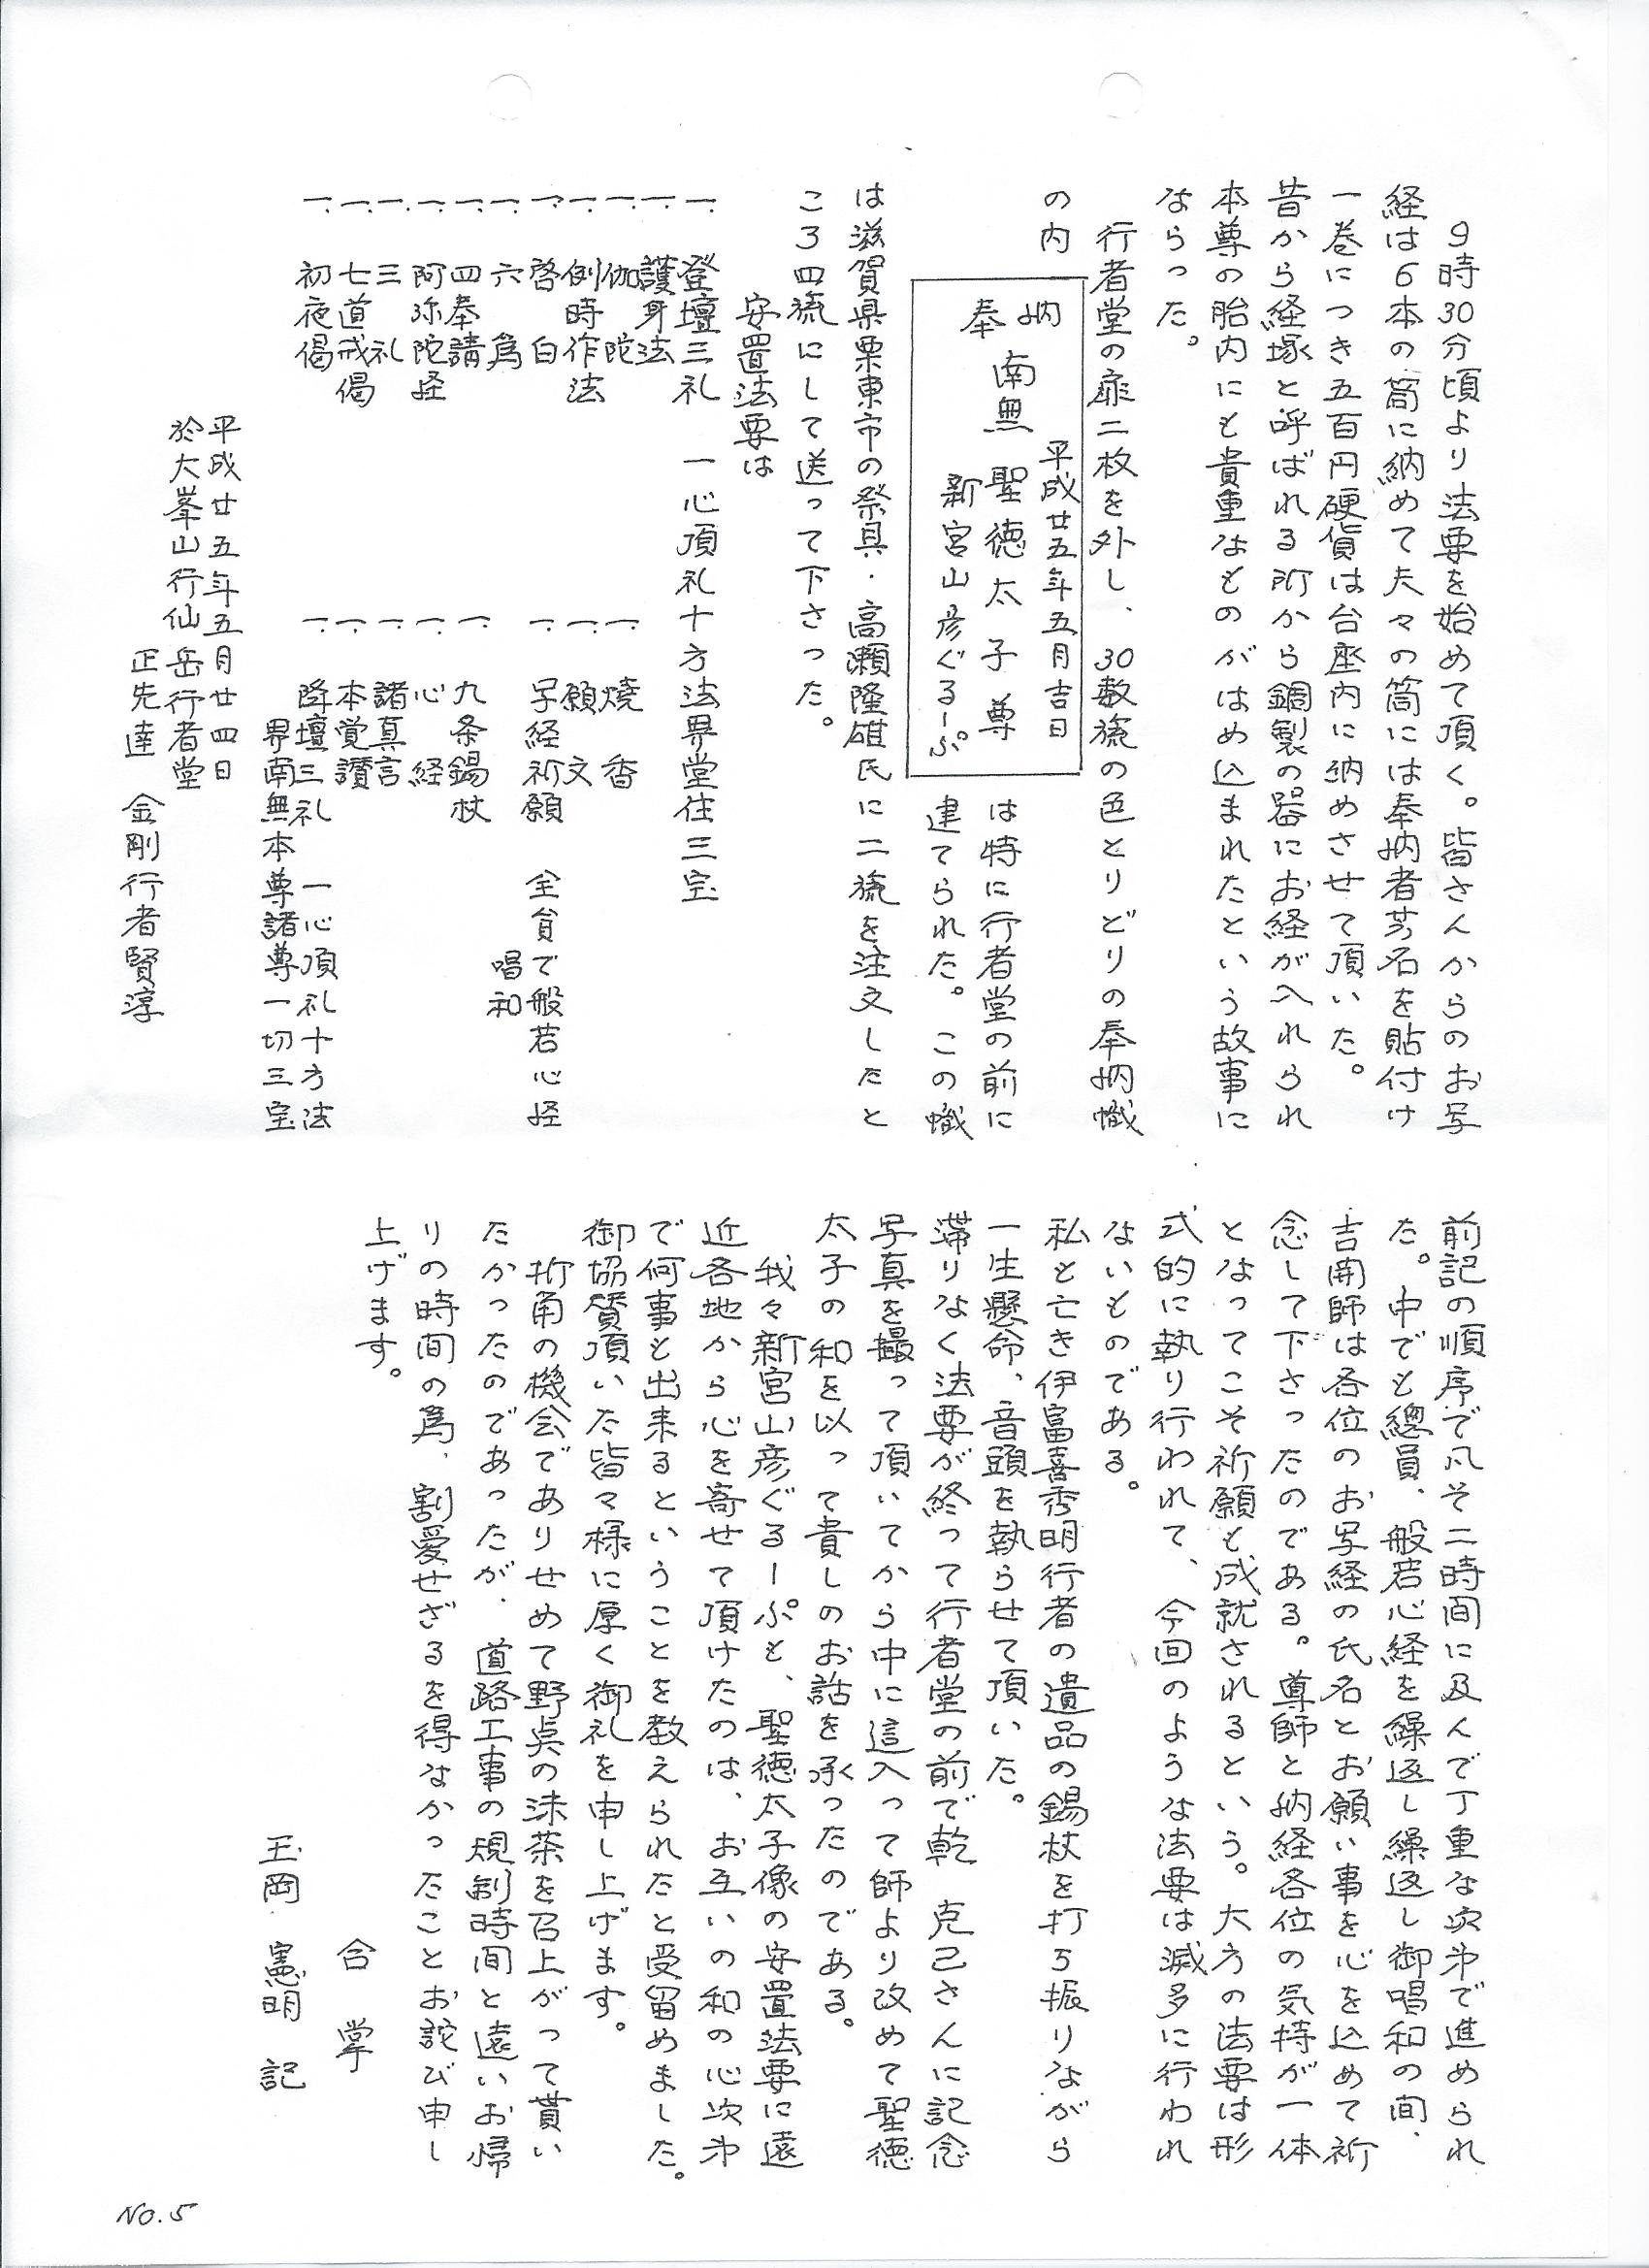 9時30分頃より法要を始めて頂く。皆さんからのお写
経は6本の筒に納めて夫々の筒には奉納者芳名を貼付け
一巻につき五百円硬貨は台座内に納めさせて頂いた。
昔から経塚と呼ばれる所から銅製の器にお経が入れられ
本尊の胎内にも貴重なものがはめ込まれたという故事に
ならった。
行者堂の扉二枚を外し、30数旒の色とりどりの奉納幟
の内
奉納
平成廿五年五月吉日
南無 聖徳太子尊
新宮山彦ぐるーぷ
は特に行者堂の前に
建てられた。この幟
は滋賀県栗東市の祭具・高瀬隆雄氏に二旒を注文したと
ころ四旒にして送って下さった。
安置法要は
一、登壇三礼 一心頂礼十方法界堂住三宝
一、護身法
一、伽陀
一、例時作法
一、啓白
一、六為
一、四奉請
一、阿弥陀経
一、三礼
一、七道戒偈
一、初夜偈
一、焼香
一、願文
一、写経祈願 全員で般若心経
唱和
一、九条錫杖
一、心経
一、諸真言
一、本覚讃
一、降壇三礼 一心頂礼十方法
界南無本尊諸尊一切三宝
平成廿五年五月廿四日
於大峯山行仙岳行者堂
正先達 金剛行者賢淳
前記の順序で凡そ二時間に及んで丁重な次第で進められ
た。中でも總員、般若心経を繰返し繰返し御唱和の間、
吉開師は各位のお写経の氏名とお願い事を心を込めて祈
念して下さったのである。尊師と納経各位の気持が一体
となってこそ祈願も成就されるという。大方の法要は形
式的に執り行われて、今回のような法要は滅多に行われ
ないものである。
私と亡き伊富喜秀明行者の遺品の錫杖を打ち振りながら
一生懸命、音頭を執らせて頂いた。
滞りなく法要が終って行者堂の前で乾 克己さんに記念
写真を撮って頂いてから中に這入って師より改めて聖徳
太子の和を以って貴しのお話を承ったのである。
我々新宮山彦ぐるーぷと、聖徳太子像の安置法要に遠
近各地から心を寄せて頂けたのは、お互いの和の心次第
で何事も出来るということを教えられたと受留めました。
御協賛頂いた皆々様に厚く御礼を申し上げます。
折角の機会でありせめて野点の抹茶を召上がって貰い
たかったのであったが、道路工事の規制時間と遠いお帰
りの時間の為、割愛せざるを得なかったことお詫び申し
上げます。
合掌
玉岡 憲明 記
NO.5